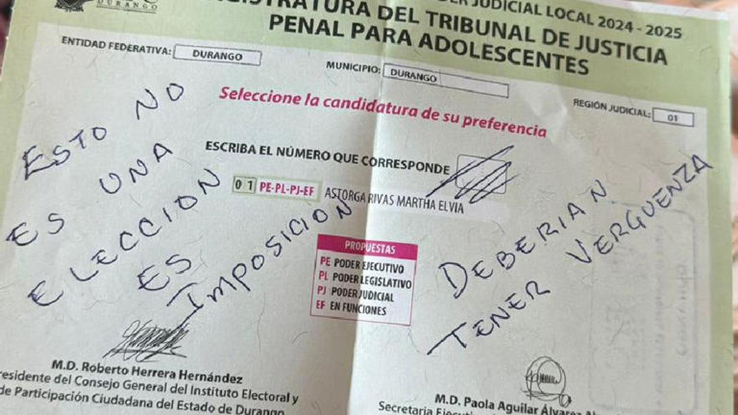 DURANGO
JUDICIAL LOCAL 2024 - 2025
MAGISTRATURA DEL TRIBUNAL DE JUSTICIA
PENAL PARA ADOLESCENTES
ENTIDAD FEDERATIVA: DURANGO
MUNICIPIO: DURANGO
REGIÓN JUDICIAL: 01
Seleccione la candidatura de su preferencia
ESCRIBA EL NÚMERO QUE CORRESPONDE
0 1 PE-PL-PJ-EF ASTORGA RIVAS MARTHA ELVIA
ESTO NO
ES UNA
ELECCION
ES
IMPOSICION
DEBERIAN
TENER VERGUENZA
PROPUESTAS
PE PODER EJECUTIVO
PL PODER LEGISLATIVO
PJ PODER JUDICIAL
EF EN FUNCIONES
M.D. Roberto Herrera Hernández
residente del Consejo General del Instituto Electoral y
de Participación Ciudadana del Estado de Durango
M.D. Paola Aguilar Álvarez
Secretaria